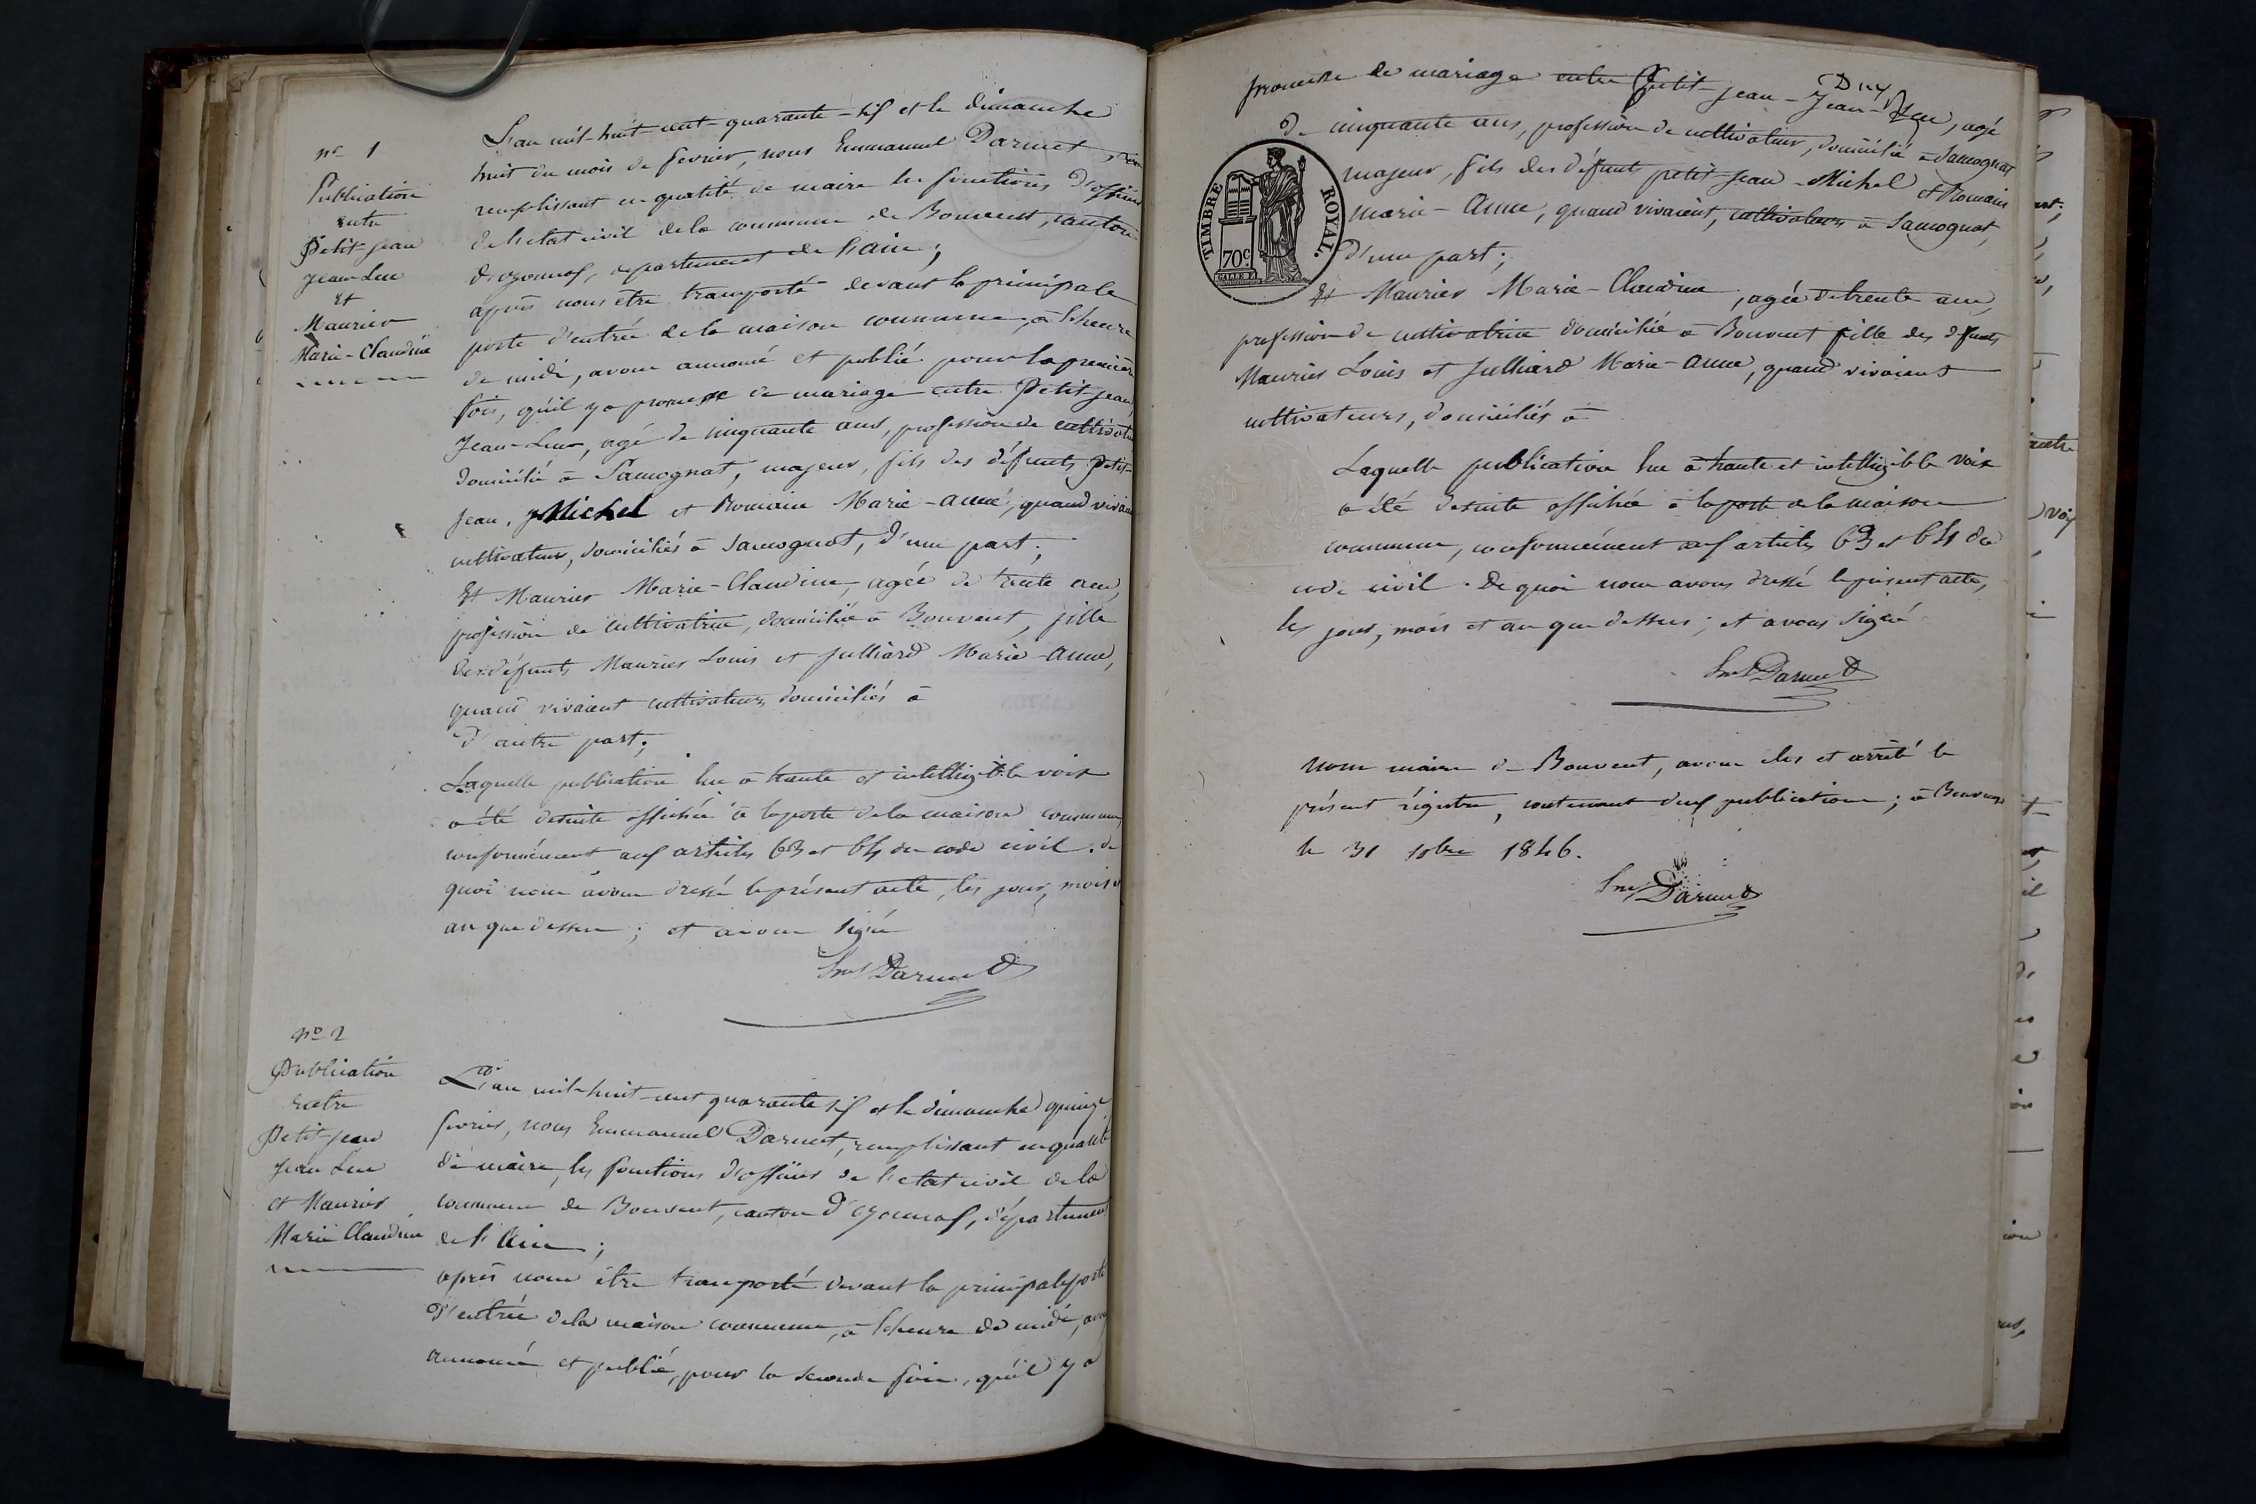 n° 1
Publication
entre
Petit-Jean
Jean-Luc
Et
Maurier
Marie-Claudine
L'an mil-huit-cent-quarante-six et le dimanche
huit du mois de fevrier, nous Emmanuel Darmet,
remplissant en qualité de maire les fonctions d'officier
de l'etat civil de la commune de Bouvent, canton
d'oyonnax, departement de l'ain;
après nous être transporté devant la principale
porte d'entrée de la maison commune, à l'heure
de midi, avons annoncé et publié pour la première
fois, qu'il y a promesse de mariage entre Petit-Jean,
Jean-Luc, agé de cinquante ans, profession de cultivateur
domicilié à Samognat, majeur, fils des défunts Petit-
Jean, Michel et Romain Marie-anne, quand vivaient
cultivateurs, domiciliés à Samognat, d'une part;
Et Maurier Marie-Claudine, agée de trente ans,
profession de cultivatrice, domiciliée à Bouvent, fille
des défunts Maurier Louis et Julliard Marie-Anne,
quand vivaient cultivateurs domiciliés à
d'autre part;
Laquelle publication lue à haute et intelligible voix
a été desuite affichée à la porte de la maison commune,
conformément aux articles 63 et 64 du code civil. de
quoi nous avons dressé le présent acte, les jour, mois et
an que dessus; et avons signé
Em.l Darmet
n° 2
Publication
entre
Petit-Jean
Jean Luc
et Maurier
Marie Claudine
L'an mil-huit-cent quarante six et le dimanche quinze
fevrier, nous Emmanuel Darmet, remplissant en qualité
de maire, les fonctions d'officier de l'etat civil de la
commune de Bouvent, canton d'oyonnax, département
de l'Ain;
après nous être transporté devant la principale porte
d'entrée de la maison commune, à l'heure de midi, avons
annoncé et publié, pour la seconde fois, qu'il y a
promesse de mariage entre Petit-Jean-Jean-Luc, agé
de cinquante ans, profession de cultivateur, domicilié à Samognat
majeur, fils des défunts petit-Jean-Michel et Romain
marie-Anne, quand vivaient, cultivateurs à Samognat,
d'une part;
TIMBRE ROYAL.
70c.
Et Maurier Marie-Claudine, agée de trente ans,
profession de cultivatrice domiciliée à Bouvent fille des défunts
Maurier Louis et Julliard Marie-Anne, quand vivaient
cultivateurs, domiciliés à
Laquelle publication lue à haute et intelligible voix
a été desuite affichée à la porte de la maison
commune, conformément aux articles 63 et 64 du
code civil. De quoi nous avons dressé le présent acte,
les jour, mois et an que dessus; et avons signé
Em.l Darmet
Nous maire de Bouvent, avons clos et arrêté le
présent régistre, contenant deux publications; à Bouvent
le 31 10bre 1846.
Em.l Darmet